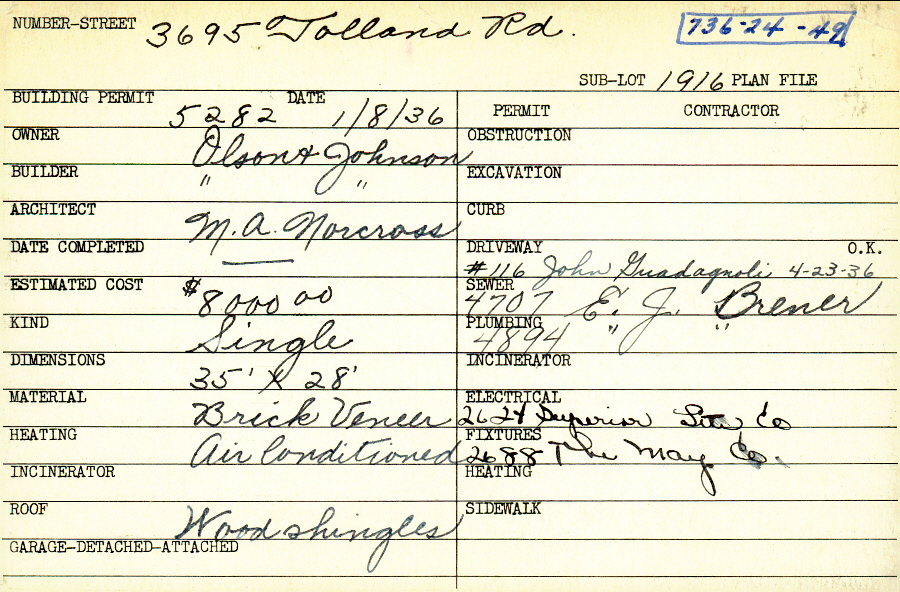 NUMBER-STREET 3695 Tolland Rd. 736-24-49
SUB-LOT 1916 PLAN FILE
BUILDING PERMIT 5282 DATE 1/8/36
PERMIT CONTRACTOR
OWNER Olson & Johnson
OBSTRUCTION
BUILDER " "
EXCAVATION
ARCHITECT M.A. Norcross
CURB
DATE COMPLETED —
DRIVEWAY O.K.
#116 John Guadagnoli 4-23-36
ESTIMATED COST $8000 00
SEWER 4707 E. J. Brener
KIND Single
PLUMBING 4894 " "
DIMENSIONS 35' X 28'
INCINERATOR
MATERIAL Brick Veneer
ELECTRICAL 2624 Superior Co
HEATING Air Conditioned
FIXTURES 2688 The May Co.
INCINERATOR
HEATING
ROOF Wood shingles
SIDEWALK
GARAGE-DETACHED-ATTACHED